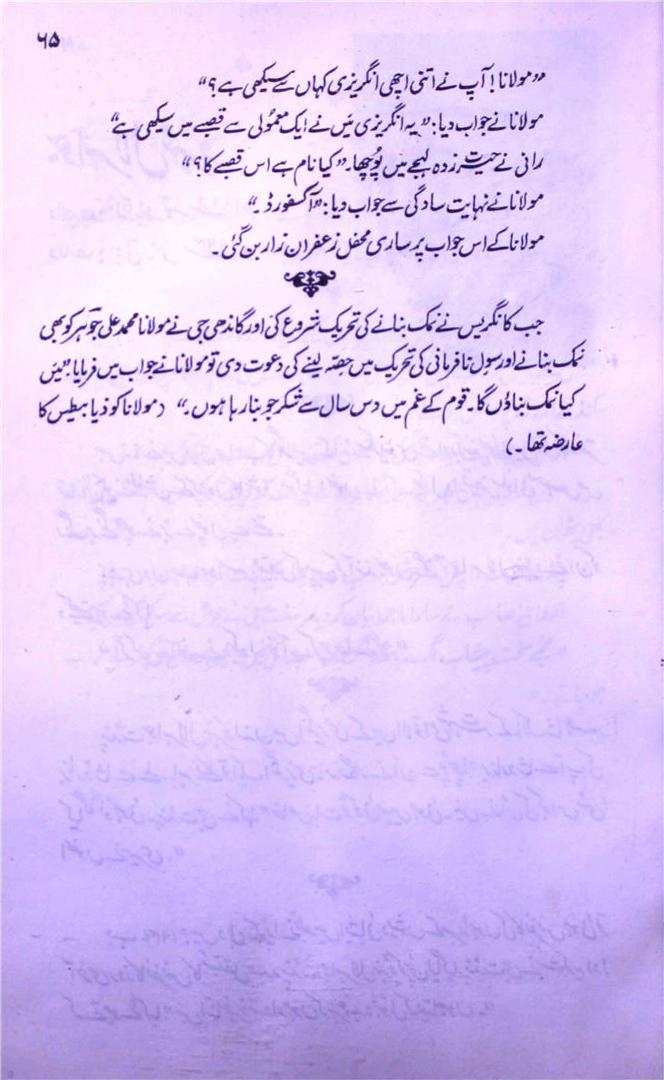 ۶۵
"مولانا! آپ نے اتنی اچھی انگریزی کہاں سے سیکھی ہے؟"
مولانا نے جواب دیا: "یہ انگریزی میں نے ایک معمولی سے قصبے میں سیکھی ہے"
رانی نے حیرت زدہ لہجے میں پوچھا۔ "کیا نام ہے اس قصبے کا؟"
مولانا نے نہایت سادگی سے جواب دیا: "آکسفورڈ۔"
مولانا کے اس جواب پر ساری محفل زعفران زار بن گئی۔
جب کانگریس نے نمک بنانے کی تحریک شروع کی اور گاندھی جی نے مولانا محمد علی جوہر کو بھی
نمک بنانے اور سول نافرمانی کی تحریک میں حصہ لینے کی دعوت دی تو مولانا نے جواب میں فرمایا: "میں
کیا نمک بناؤں گا۔ قوم کے غم میں دس سال سے شکر جو بنا رہا ہوں۔" (مولانا کو ذیابیطس کا
عارضہ تھا۔)